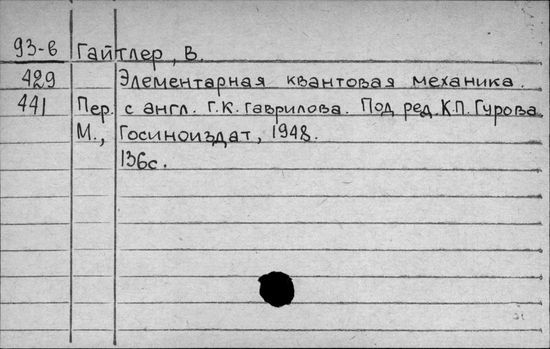 93-6 Гайтлер, В.
429 Элементарная квантовая механика.
441 Пер. с англ. Г.К. Гаврилова. Под ред. К.П. Гурова.
М., Госиноиздат, 1948.
136с.